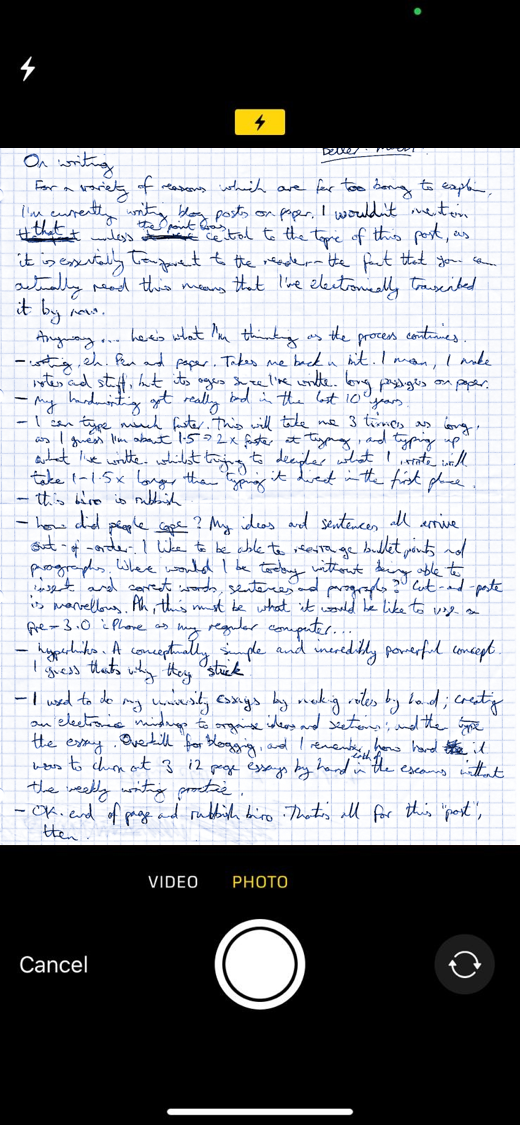 better. much.
On writing
For a variety of reasons which are far too boring to explain,
I'm currently writing blog posts on paper. I wouldn't mention
that unless the point was central to the topic of this post, as
it is essentially transparent to the reader - the fact that you can
actually read this means that I've electronically transcribed
it by now.
Anyway... here's what I'm thinking as the process continues.
- writing, eh. Pen and paper. Takes me back a bit. I mean, I make
notes and stuff, but its ages since I've written long passages on paper.
- My handwriting got really bad in the last 10 years.
- I can type much faster. This will take me 3 times as long,
as I guess I'm about 1.5 → 2x faster at typing, and typing up
what I've written whilst trying to decipher what I wrote will
take 1-1.5x longer than typing it direct in the first place.
- this biro is rubbish
- how did people cope? My ideas and sentences all arrive
out-of-order. I like to be able to rearrange bullet points and
paragraphs. Where would I be today without being able to
insert and correct words, sentences and paragraphs? Cut-and-paste
is marvellous. Ah, this must be what it would be like to use a
pre-3.0 iPhone as my regular computer...
- hyperlinks. A conceptually simple and incredibly powerful concept.
I guess thats why they stuck
- I used to do my university essays by making notes by hand; creating
an electronic mindmap to organise ideas and sections; and the type
the essay. Overkill for blogging, and I remember how hard it
was to churn out 3 12 page essays by hand in the exams without
the weekly writing practice.
- OK. end of page and rubbish biro. That's all for this "post",
then.
VIDEO PHOTO
Cancel